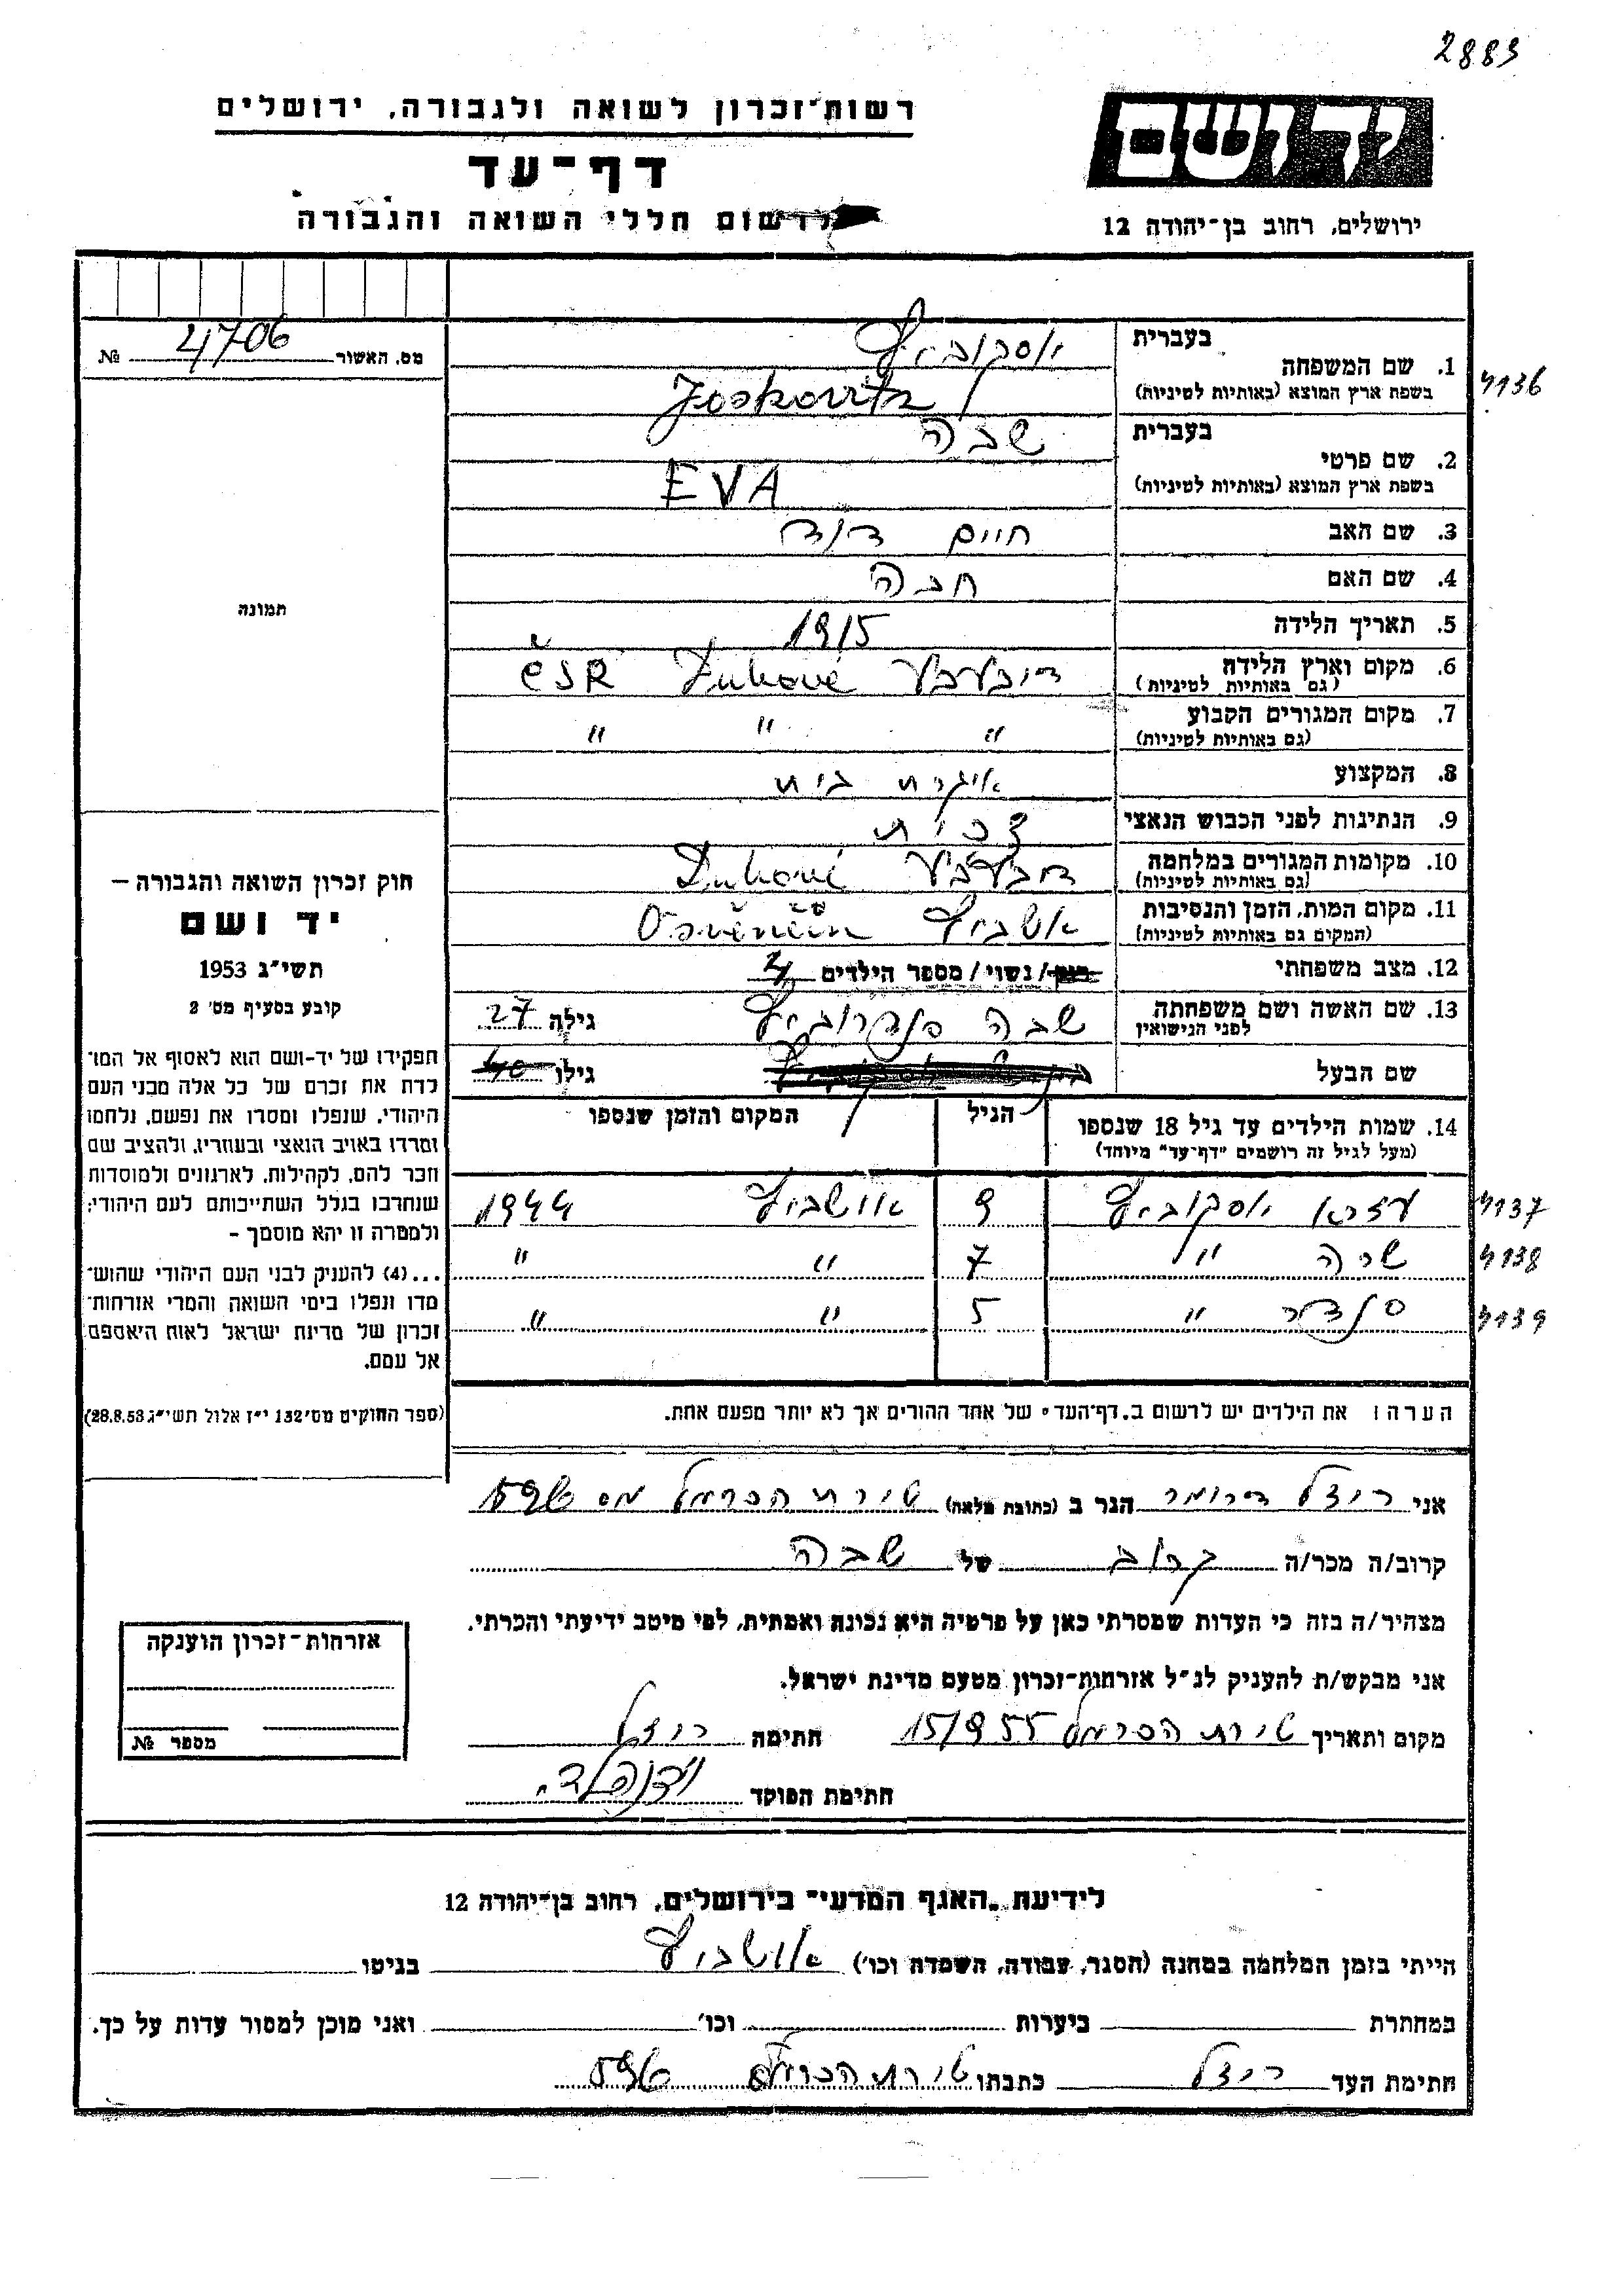 2883
רשות־זכרון לשואה ולגבורה, ירושלים
יד ושם
דף־עד
לרשום חללי השואה והגבורה
ירושלים, רחוב בן־יהודה 12
מס. האשור 4706 №
תמונה
1. שם המשפחה
בעברית יוסקוביץ
בשפת ארץ המוצא (באותיות לטיניות) Joskovitz
4136
2. שם פרטי
בעברית שבה
בשפת ארץ המוצא (באותיות לטיניות) EVA
3. שם האב חיים דוד
4. שם האם חבה
5. תאריך הלידה 1915
6. מקום וארץ הלידה Duhové ČSR
(גם באותיות לטיניות)
7. מקום המגורים הקבוע " " "
(גם באותיות לטיניות)
8. המקצוע בית
9. הנתינות לפני הכבוש הנאצי
10. מקומות המגורים במלחמה Duhové
(גם באותיות לטיניות)
11. מקום המות, הזמן והנסיבות אושביץ
(המקום גם באותיות לטיניות)
12. מצב משפחתי רווק/נשוי/מספר הילדים
13. שם האשה ושם משפחתה שבה גילה 27
לפני הנישואין
שם הבעל גילו 40
14. שמות הילדים עד גיל 18 שנספו הגיל המקום והזמן שנספו
(מעל לגיל זה רושמים "דף־עד" מיוחד)
עזרא יוסקוביץ 9 אושביץ 1944 4137
שרה " 7 " " 4138
סנדר " 5 " " 4139
הערה: את הילדים יש לרשום ב„דף־העד" של אחד ההורים אך לא יותר מפעם אחת.
חוק זכרון השואה והגבורה –
יד ושם
תשי"ג 1953
קובע בסעיף מס' 2
תפקידו של יד־ושם הוא לאסוף אל המו־
לדת את זכרם של כל אלה מבני העם
היהודי, שנפלו ומסרו את נפשם, נלחמו
ומרדו באויב הנאצי ובעוזריו, ולהציב שם
וזכר להם, לקהילות, לארגונים ולמוסדות
שנחרבו בגלל השתייכותם לעם היהודי;
ולמטרה זו יהא מוסמך –
...(4) להעניק לבני העם היהודי שהוש־
מדו ונפלו בימי השואה והמרי אזרחות־
זכרון של מדינת ישראל לאות היאספם
אל עמם.
(ספר החוקים מס' 132 י"ז אלול תשי"ג 28.8.53)
אני רוזל דרומר הגר ב (כתובת מלאה) טירת הכרמל מס
קרוב/ה מכר/ה קרוב של שבה
מצהיר/ה בזה כי העדות שמסרתי כאן על פרטיה היא נכונה ואמתית, לפי מיטב ידיעתי והכרתי.
אני מבקש/ת להעניק לנ"ל אזרחות־זכרון מטעם מדינת ישראל.
מקום ותאריך טירת הכרמל 15/9 55 חתימה רוזל
חתימת הפוקד
אזרחות־זכרון הוענקה
מספר №
לידיעת „האגף המדעי" בירושלים, רחוב בן־יהודה 12
הייתי בזמן המלחמה במחנה (הסגר, עבודה, השמדה וכו') אושביץ בגיטו
במחתרת ביערות וכו' ואני מוכן למסור עדות על כך.
חתימת העד רוזל כתבתו טירת הכרמל